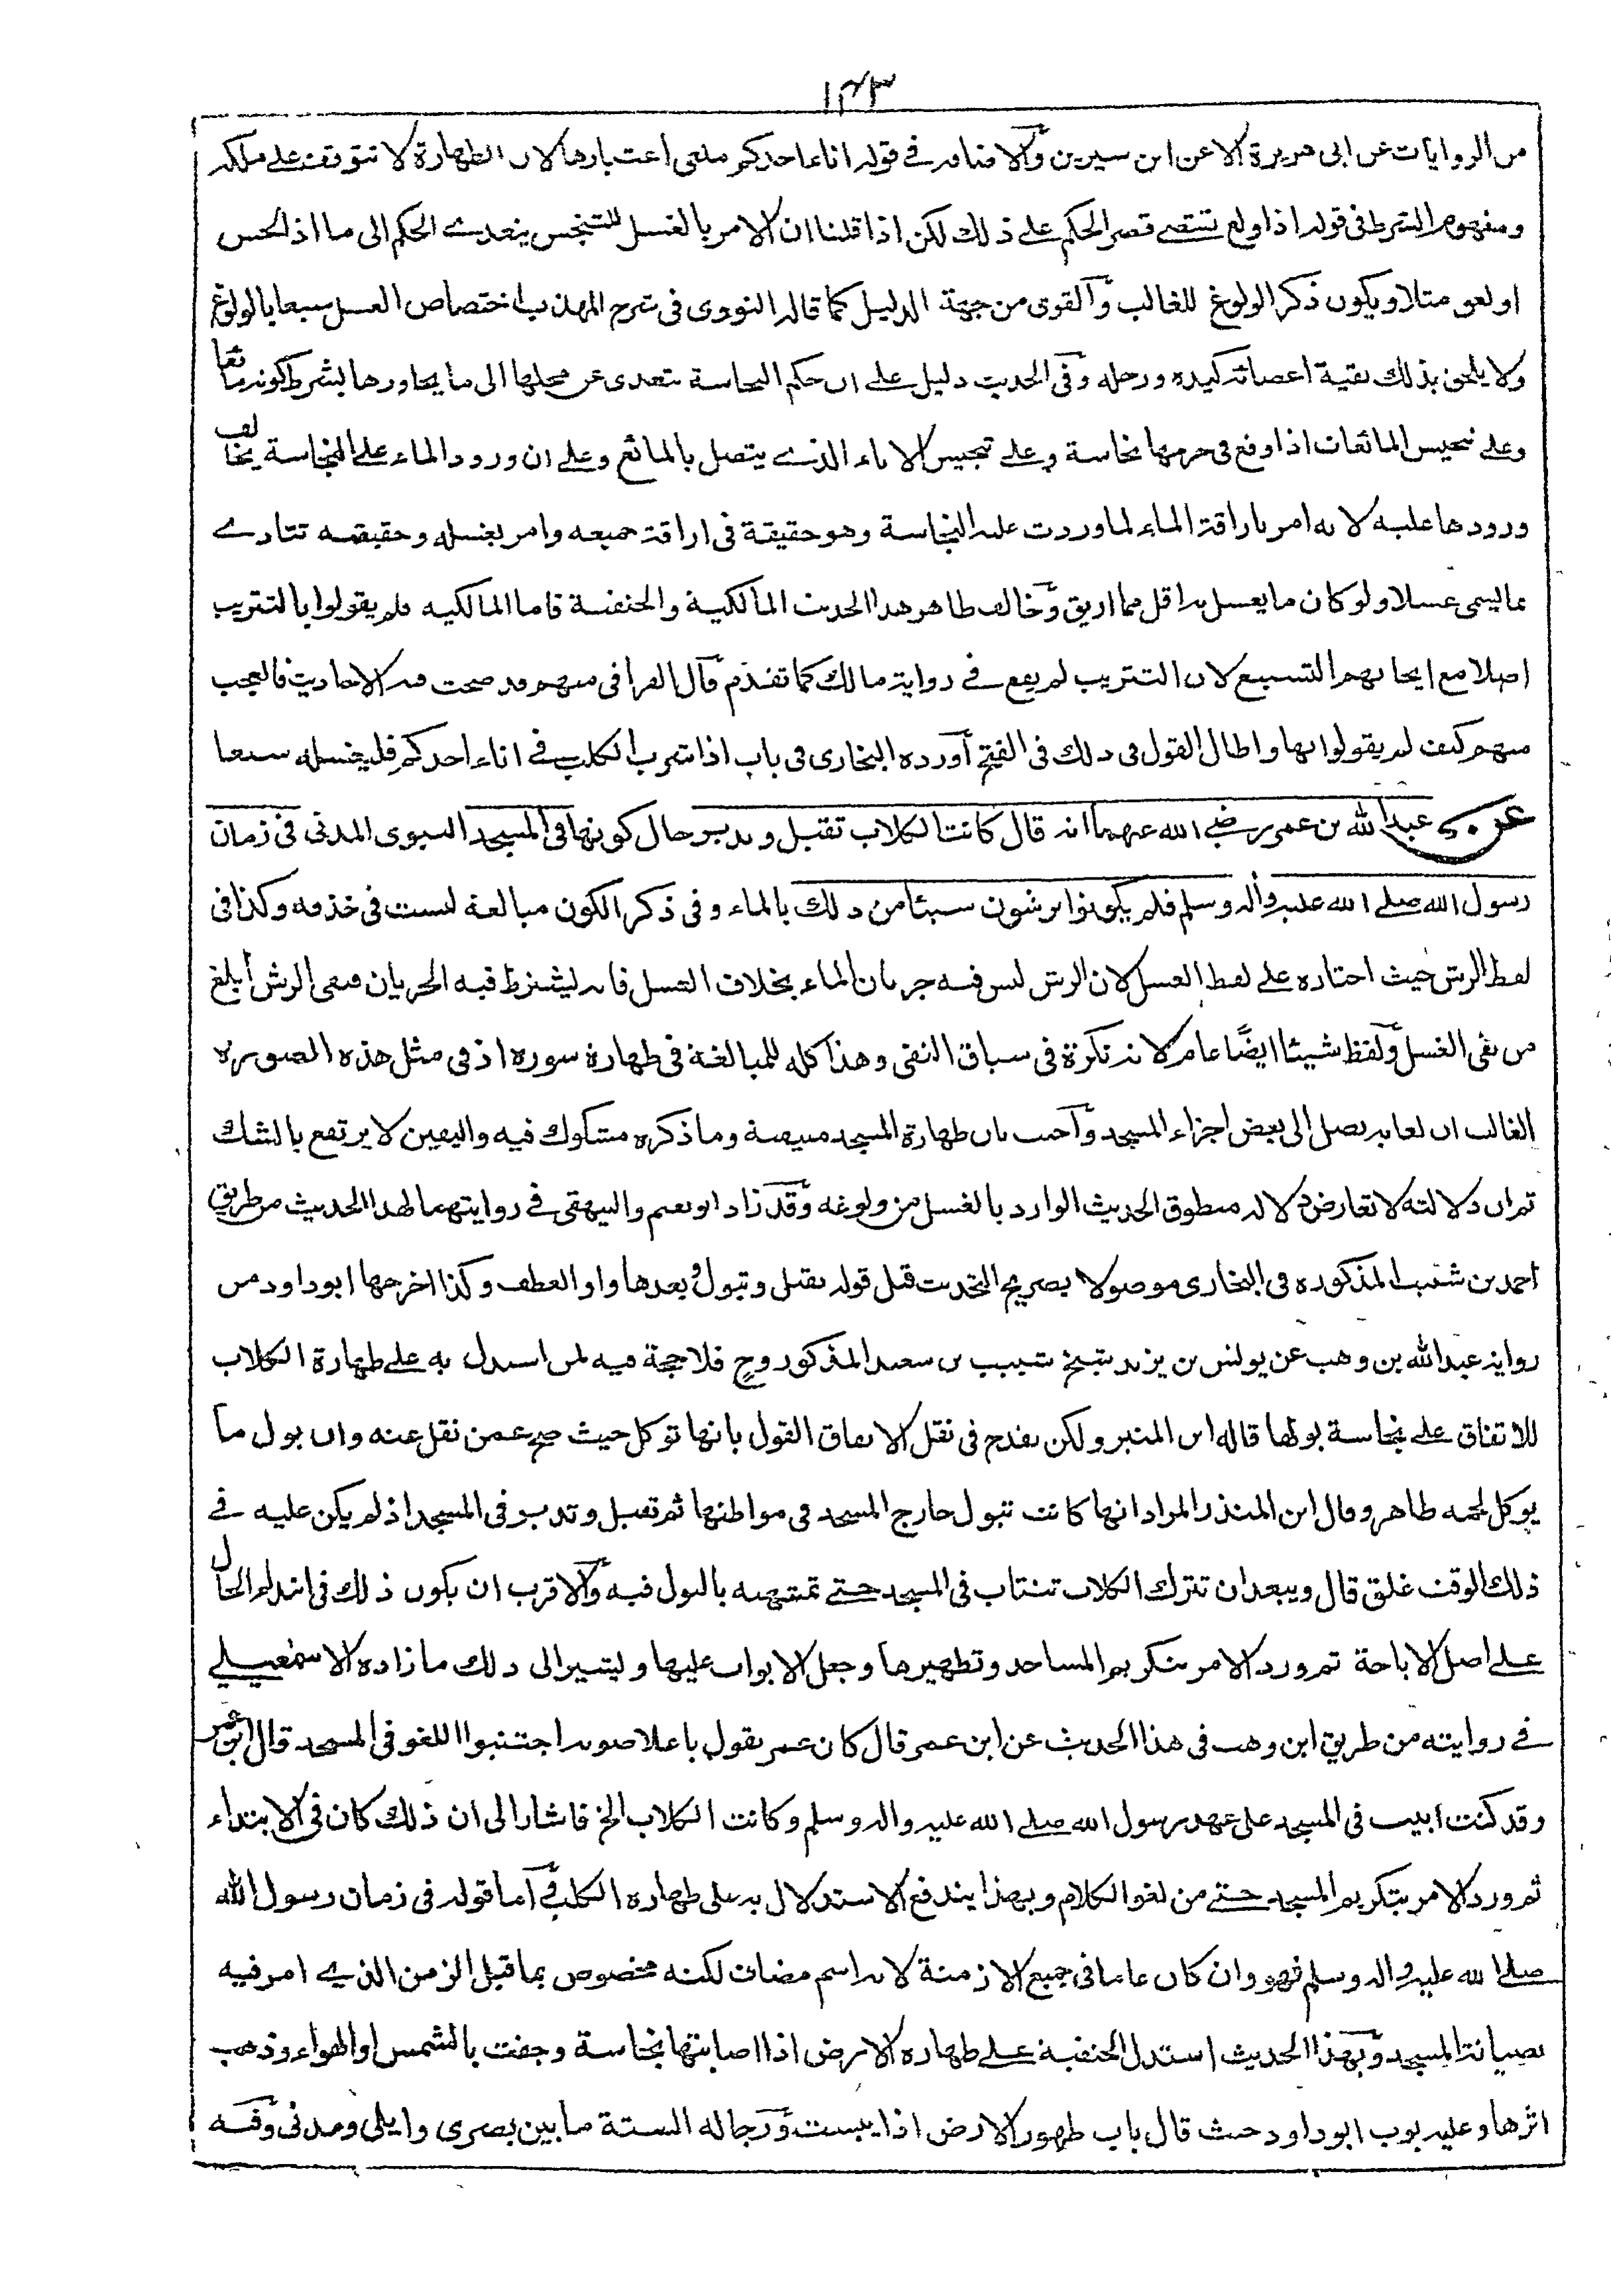 ١٤٣
من الروايات عن ابى هريرة الا عن ابن سيرين والاضافة في قوله اناء احدكم ملغى اعتبارها لان الطهارة لا تتوقف على ملكه
ومفهوم الشرط فى قوله اذا ولغ تقتضى قصر الحكم على ذلك لكن اذا قلنا ان الامر بالغسل للتنجس يتعدى الحكم الى ما اذا لحس
او لعق مثلا ويكون ذكر الولوغ للغالب والقوى من جهة الدليل كما قاله النووى فى شرح المهذب اختصاص الغسل سبعا بالولوغ
ولا يلحق بذلك بقية اعضائه كيده ورجله وفى الحديث دليل على ان حكم النجاسة يتعدى عن محلها الى ما يجاورها بشرط كونه مائعا
وعلى تنجيس المائعات اذا وقع فى جرمها نجاسة وعلى تنجيس الاناء الذى يتصل بالمائع وعلى ان ورود الماء على النجاسة يخالف
ورودها عليه لانه امر باراقة الماء لما وردت عليه النجاسة وهو حقيقة فى اراقة جميعه وامر بغسله وحقيقته تتادى
بما يسمى غسلا ولو كان ما يغسل به اقل مما اريق وخالف ظاهر هذا الحديث المالكية والحنفية فاما المالكيه فلم يقولوا بالتتريب
اصلا مع ايجابهم التسبيع لان التتريب لم يقع في رواية مالك كما تقدم قال القرافى منهم قد صحت فيه الاحاديث فالعجب
منهم كيف لم يقولوا بها واطال القول فى ذلك فى الفتح أورده البخارى فى باب اذا شرب الكلب في اناء احدكم فليغسله سبعا
عن عبد الله بن عمر رضى الله عنهما انه قال كانت الكلاب تقبل وتدبر حال كونها فى المسجد النبوى المدنى فى زمان
رسول الله صلى الله عليه وآله وسلم فلم يكونوا يرشون شيئا من ذلك بالماء وفى ذكر الكون مبالغة ليست فى حذفه وكذا فى
لفظ الرش حيث اختاره على لفظ الغسل لان الرش ليس فيه جريان الماء بخلاف الغسل فانه يشترط فيه الجريان فنفى الرش أبلغ
من نفى الغسل ولفظ شيئا ايضًا عام لانه نكرة فى سياق النفى وهذا كله للمبالغة فى طهارة سوره اذ فى مثل هذه الصورة
الغالب ان لعابه يصل الى بعض اجزاء المسجد واجيب بان طهارة المسجد متيقنة وما ذكره مشكوك فيه واليقين لا يرتفع بالشك
ثم ان دلالته لا تعارض دلالة منطوق الحديث الوارد بالغسل من ولوغه وقد زاد ابو نعيم والبيهقى في روايتهما لهذا الحديث من طريق
احمد بن شبيب المذكوره فى البخارى موصولا بصريح التحديث قبل قوله تقبل وتبول وبعدها واو العطف وكذا اخرجها ابو داود من
رواية عبد الله بن وهب عن يونس بن يزيد شيخ شبيب بن سعيد المذكور وح فلا حجة فيه لمن استدل به على طهارة الكلاب
للاتفاق على نجاسة بولها قاله ابن المنير ولكن يقدح فى نقل الاتفاق القول بانها توكل حيث صح عمن نقل عنه وان بول ما
يوكل لحمه طاهر وقال ابن المنذر المراد انها كانت تبول خارج المسجد فى مواطنها ثم تقبل وتدبر فى المسجد اذ لم يكن عليه في
ذلك الوقت غلق قال ويبعد ان تترك الكلاب تنتاب فى المسجد حتى تمتهنه بالبول فيه والاقرب ان يكون ذلك فى ابتداء الحال
على اصل الاباحة ثم ورد الامر بتكريم المساجد وتطهيرها وجعل الابواب عليها ويشير الى ذلك ما زاده الاسمعيلي
في روايته من طريق ابن وهب فى هذا الحديث عن ابن عمر قال كان عمر يقول باعلا صوته اجتنبوا اللغو فى المسجد قال ابن عمر
وقد كنت ابيت فى المسجد على عهد رسول الله صلى الله عليه واله وسلم وكانت الكلاب الخ فاشار الى ان ذلك كان فى الابتداء
ثم ورد الامر بتكريم المسجد حتى من لغو الكلام وبهذا يندفع الاستدلال به على طهارة الكلب وأما قوله فى زمان رسول الله
صلى الله عليه واله وسلم فهو وان كان عاما فى جميع الازمنة لانه اسم مضاف لكنه مخصوص بما قبل الزمن الذي امر فيه
بصيانة المسجد وبهذا الحديث استدل الحنفية على طهارة الارض اذا اصابتها نجاسة وجفت بالشمس او الهواء وذهب
اثرها وعليه بوب ابو داود حيث قال باب طهور الارض اذا يبست ورجاله الستة ما بين بصرى وايلى ومدنى وفيه